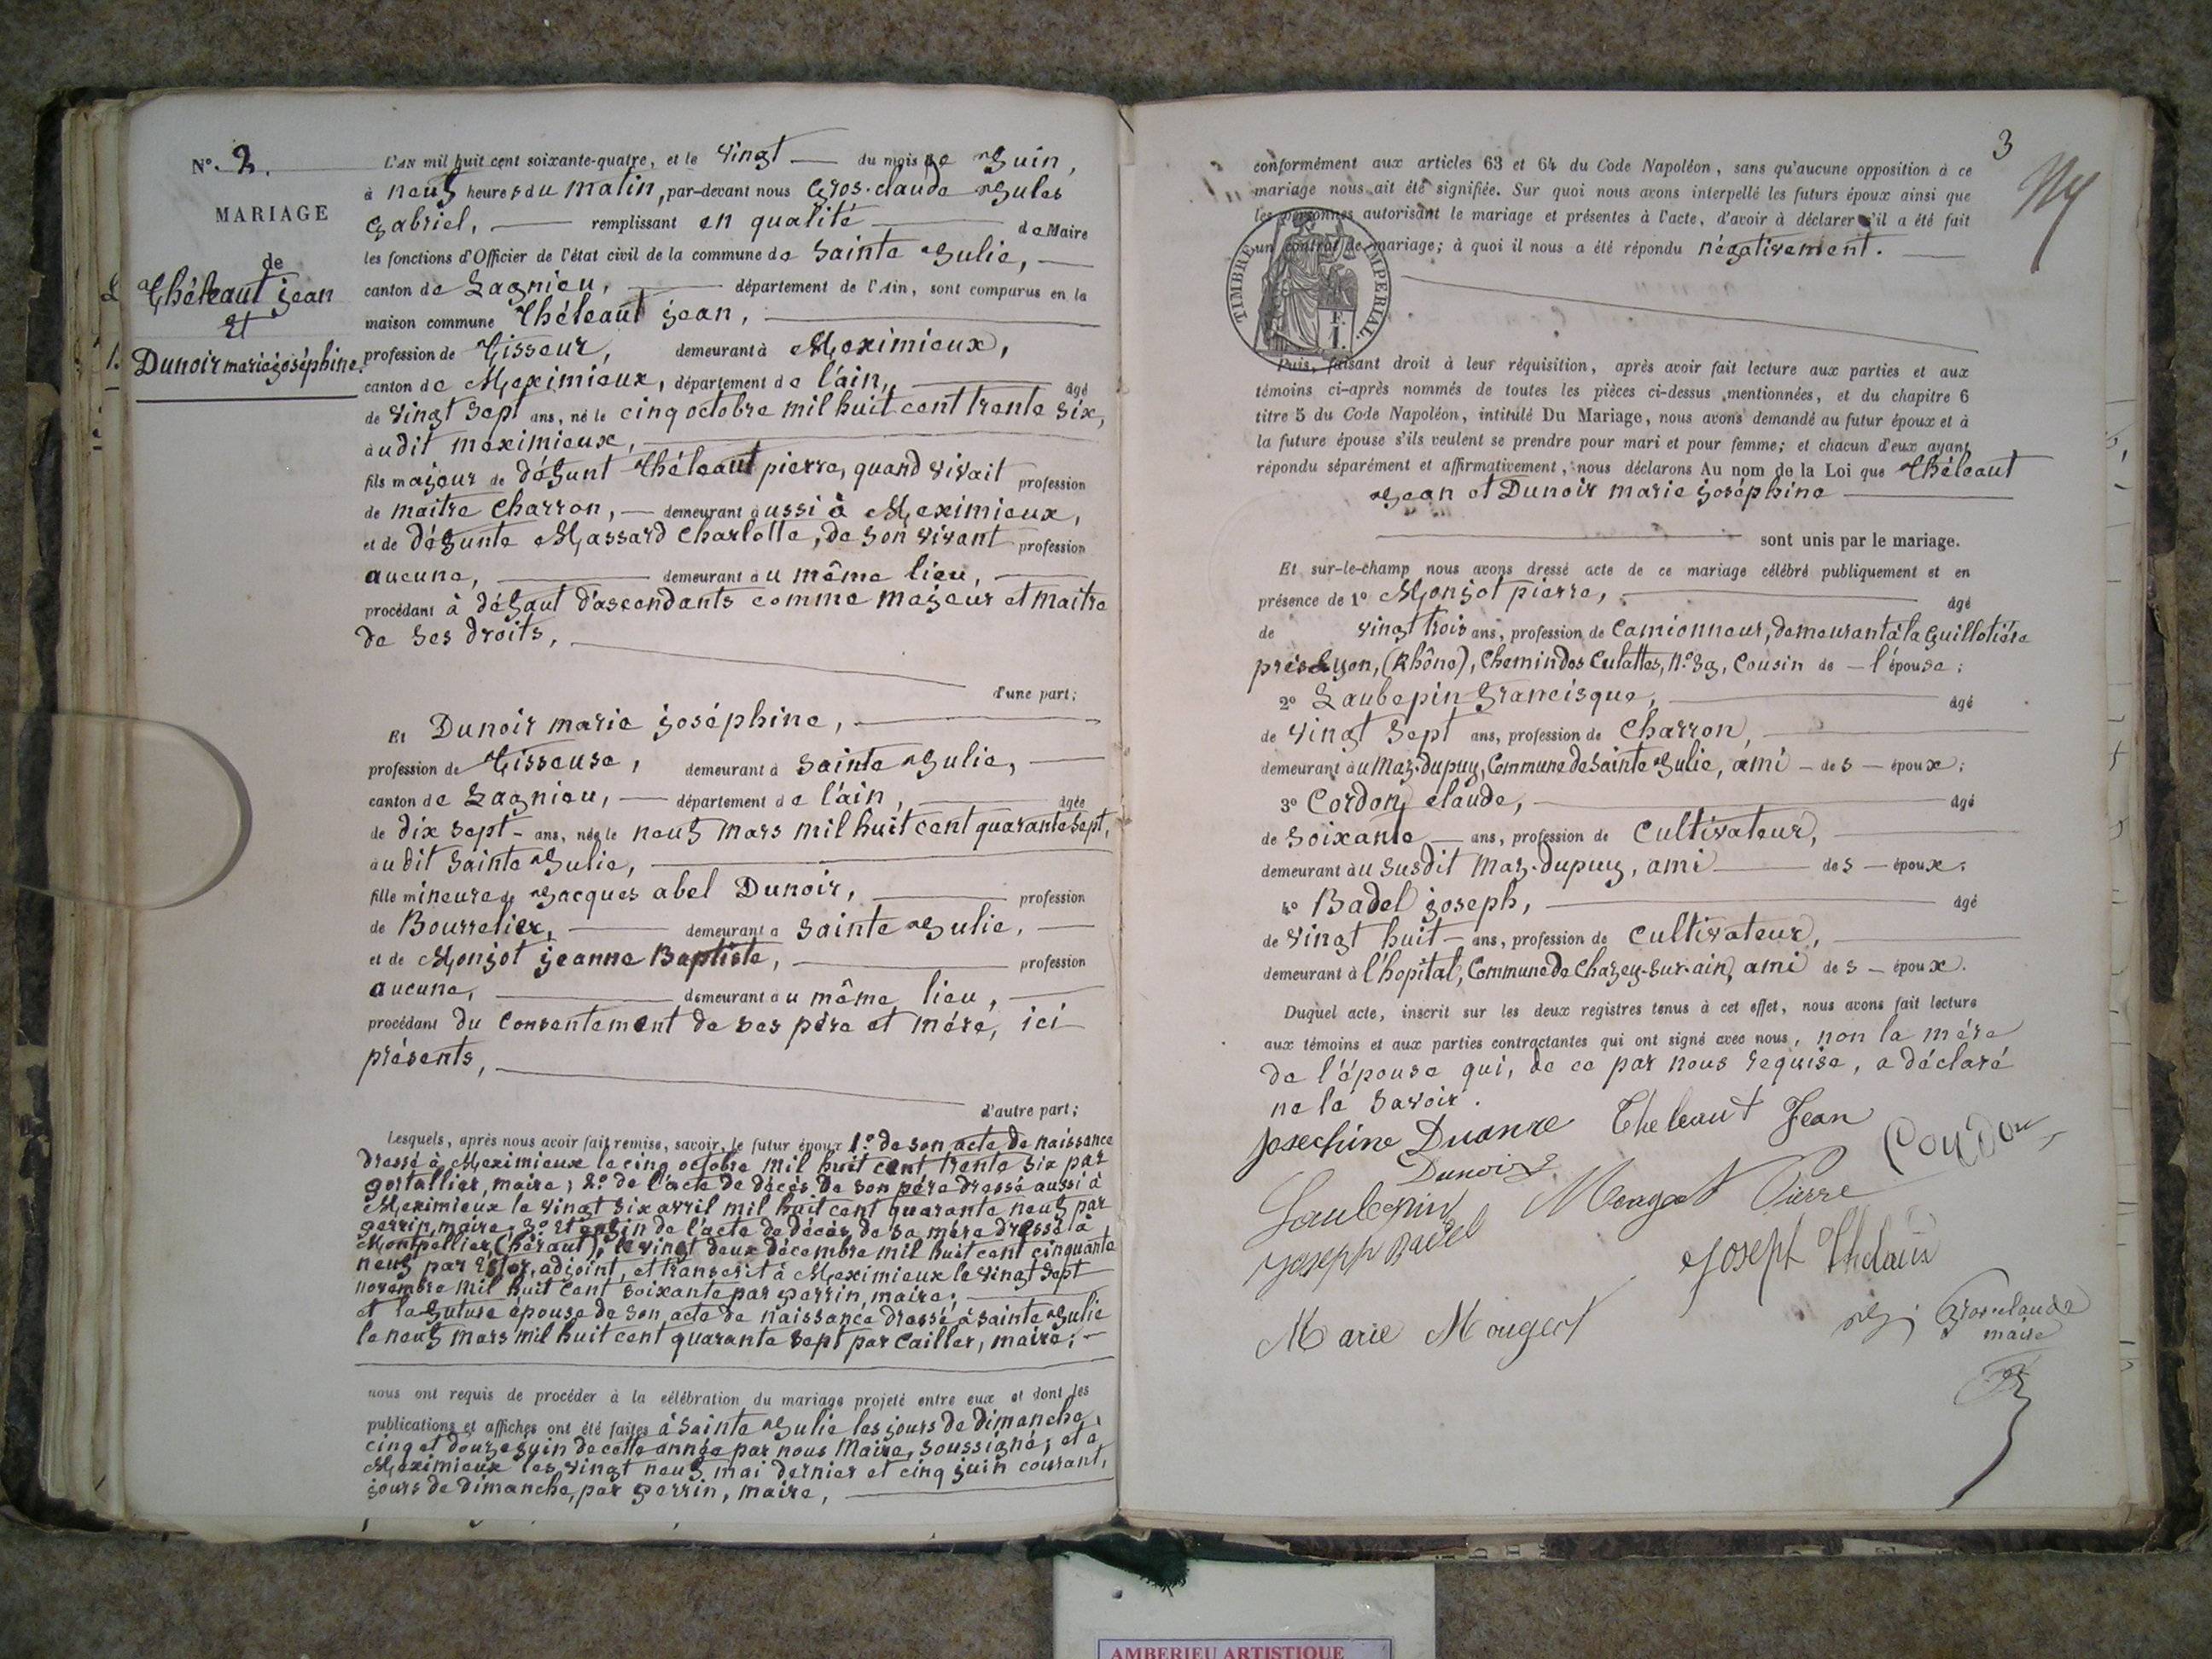 N°. 2.
MARIAGE
de
Théleaut jean
Et
Dunoir marie joséphine.
L'AN mil huit cent soixante-quatre, et le vingt du mois de Juin,
à neuf heures du matin, par-devant nous Gros-claude Jules
Gabriel, remplissant en qualité de Maire
les fonctions d'Officier de l'état civil de la commune de Sainte Julie,
canton de Lagnieu, département de l'Ain, sont comparus en la
maison commune Théleaut jean,
profession de Tisseur, demeurant à Meximieux,
canton de Meximieux, département de l'ain, âgé
de vingt sept ans, né le cinq octobre mil huit cent trente six,
audit meximieux,
fils majeur de défunt Théleaut pierre, quand vivait profession
de maitre Charron, demeurant aussi à Meximieux,
et de défunte Massard Charlotte, de son vivant profession
aucune, demeurant au même lieu,
procédant à défaut d'ascendants comme majeur et maitre
de ses droits,
d'une part;
Et Dunoir marie joséphine,
profession de Tisseuse, demeurant à Sainte Julie,
canton de Lagnieu, département de l'ain, âgée
de dix sept ans, née le neuf mars mil huit cent quarante sept,
audit Sainte Julie,
fille mineure de Jacques abel Dunoir, profession
de Bourrelier, demeurant a Sainte Julie,
et de Monjot jeanne Baptiste, profession
aucune, demeurant au même lieu,
procédant du Consentement de ses père et mère, ici
présents,
d'autre part;
Lesquels, après nous avoir fait remise, savoir, le futur époux 1.° de son acte de naissance
dressé à Meximieux le cinq octobre mil huit cent trente six par
maire; 2.° de l'acte de décès de son père dressé aussi à
Meximieux le vingt six avril mil huit cent quarante neuf par
perrin, maire; 3.° Et enfin de l'acte de décès de sa mère dressé à
Montpellier (héraut), le vingt deux décembre mil huit cent cinquante
neuf par adjoint, et transcrit à Meximieux le vingt sept
novembre mil huit cent soixante par perrin, maire;
et la future épouse de son acte de naissance dressé à Sainte Julie
le neuf mars mil huit cent quarante sept par Cailler, maire;
nous ont requis de procéder à la célébration du mariage projeté entre eux et dont les
publications et affiches ont été faites à Sainte Julie les jours de dimanche,
cinq et douze juin de cette année par nous Maire, soussigné; et à
Meximieux les vingt neuf mai dernier et cinq juin courant,
jours de dimanche, par perrin, maire,
3
conformément aux articles 63 et 64 du Code Napoléon, sans qu'aucune opposition à ce
mariage nous ait été signifiée. Sur quoi nous avons interpellé les futurs époux ainsi que
les personnes autorisant le mariage et présentes à l'acte, d'avoir à déclarer s'il a été fait
un contrat de mariage; à quoi il nous a été répondu négativement.
TIMBRE IMPERIAL
Puis, faisant droit à leur réquisition, après avoir fait lecture aux parties et aux
témoins ci-après nommés de toutes les pièces ci-dessus mentionnées, et du chapitre 6
titre 5 du Code Napoléon, intitulé Du Mariage, nous avons demandé au futur époux et à
la future épouse s'ils veulent se prendre pour mari et pour femme; et chacun d'eux ayant
répondu séparément et affirmativement, nous déclarons Au nom de la Loi que Théleaut
Jean et Dunoir marie joséphine
sont unis par le mariage.
Et sur-le-champ nous avons dressé acte de ce mariage célébré publiquement et en
présence de 1° Monjot pierre, âgé
de vingt trois ans, profession de Camionneur, demeurant à la Guillotière
près Lyon, (Rhône), Chemin des Culattes, N.° 39, Cousin de l'épouse;
2° Laubepin francisque, âgé
de vingt sept ans, profession de Charron,
demeurant au Maz-dupuy, Commune de Sainte Julie, ami des époux;
3° Cordon claude, âgé
de soixante ans, profession de Cultivateur,
demeurant au susdit maz-dupuy, ami des époux;
4° Badel joseph, âgé
de vingt huit ans, profession de Cultivateur,
demeurant à l'hopital, Commune de Chazey-sur-ain, ami des époux.
Duquel acte, inscrit sur les deux registres tenus à cet effet, nous avons fait lecture
aux témoins et aux parties contractantes qui ont signé avec nous, non la mère
de l'épouse qui, de ce par nous requise, a déclaré
ne le savoir.
Josephine Theleaut Jean
Dunoir Cordon
Laubepin Mongeot Pierre
Joseph Badel
Joseph
Marie Mougeot
Gros-claude
maire
AMBERIEU ARTISTIQUE